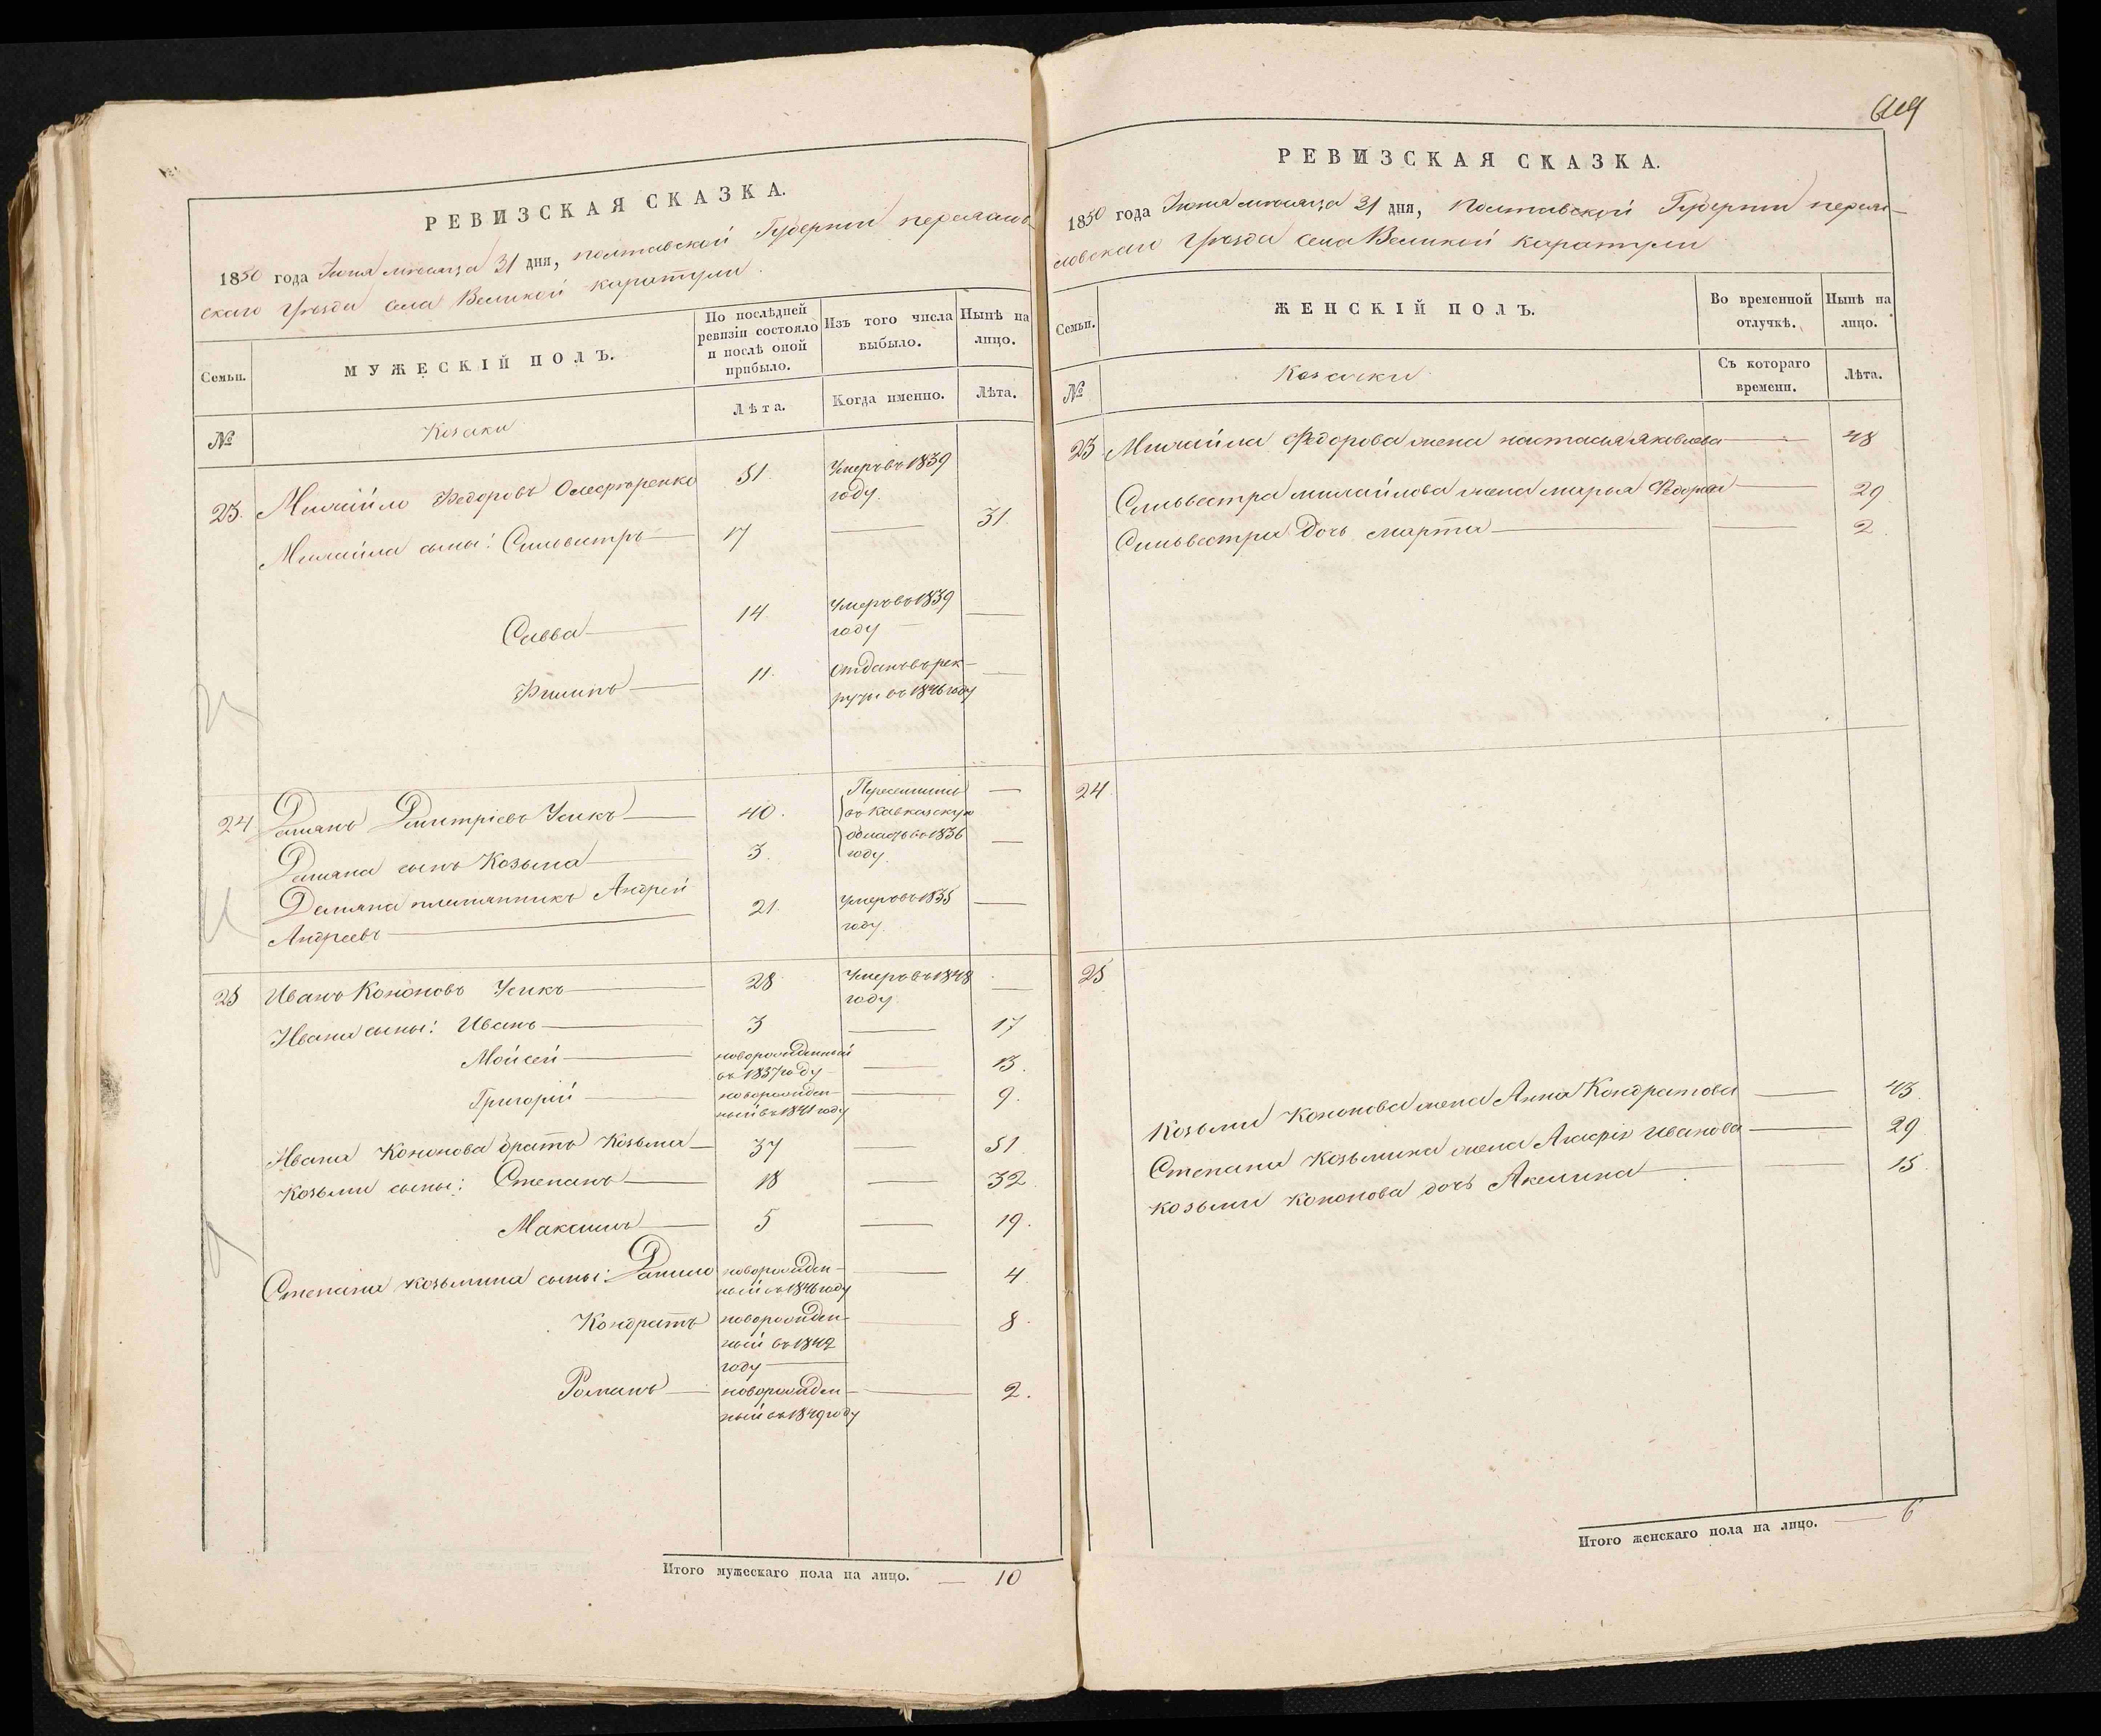 РЕВИЗСКАЯ СКАЗКА.
1850 года Июня месяца 31 дня, Полтавской Губернии переяслов-
скаго Уѣзда села Великой каратули
Семьи. МУЖЕСКІЙ ПОЛЪ. По послѣдней ревизіи состояло и послѣ оной прибыло. Изъ того числа выбыло. Нынѣ на лицо.
№ Козаки Лѣта. Когда именно. Лѣта.
23. Михайло Федоровъ 51 Умеръ въ 1839
году
Михайла сыны: Сильвестръ 17 — 31.
Савва 14 Умеръ въ 1839
году —
Филипъ 11. отданъ въ рек-
руты въ 1846 году —
24 Демянъ Дмитріевъ Усикъ 40. Переселились —
въ Кавказскую
Демяна сынъ Козьма 3. область въ 1836
году. —
Демяна племянникъ Андрей
Андреевъ 21. Умеръ въ 1835
году. —
25 Иванъ Кононовъ Усикъ 28 Умеръ въ 1848
году —
Ивана сыны: Иванъ 3 — 17
Мойсей новорожденный
въ 1837 году — 13.
Григорій новорожден-
ный въ 1841 году — 9.
Ивана Кононова братъ Козьма 37 — 51.
Козьми сыны: Степанъ 18 — 32
Максимъ 5 — 19.
Степана Козьмина сыны: Данило новорожден-
ный въ 1846 году — 4
Кондратъ новорожден-
ный въ 1842
году — 8.
Романъ новорожден-
ный въ 1849 году — 2.
Итого мужескаго пола на лицо. — 10
РЕВИЗСКАЯ СКАЗКА.
1850 года Июня месяца 31 дня, Полтавской Губернии переяс-
ловскаго Уѣзда села Великой Каратули
Семьи. ЖЕНСКІЙ ПОЛЪ. Во временной отлучкѣ. Нынѣ на лицо.
№ Козачки Съ котораго времени. Лѣта.
23 Михайла Федорова жена настасья Яковлева — 48
Сильвестра михайлова жена марья Федорова — 29
Сильвестра дочь марта — 2.
24.
25
Козьми Кононова жена Анна Кондратова — 43.
Степана Козьмина жена Агафія Иванова — 29
Козьми Кононова дочь Акилина — 15.
Итого женскаго пола на лицо. — 6